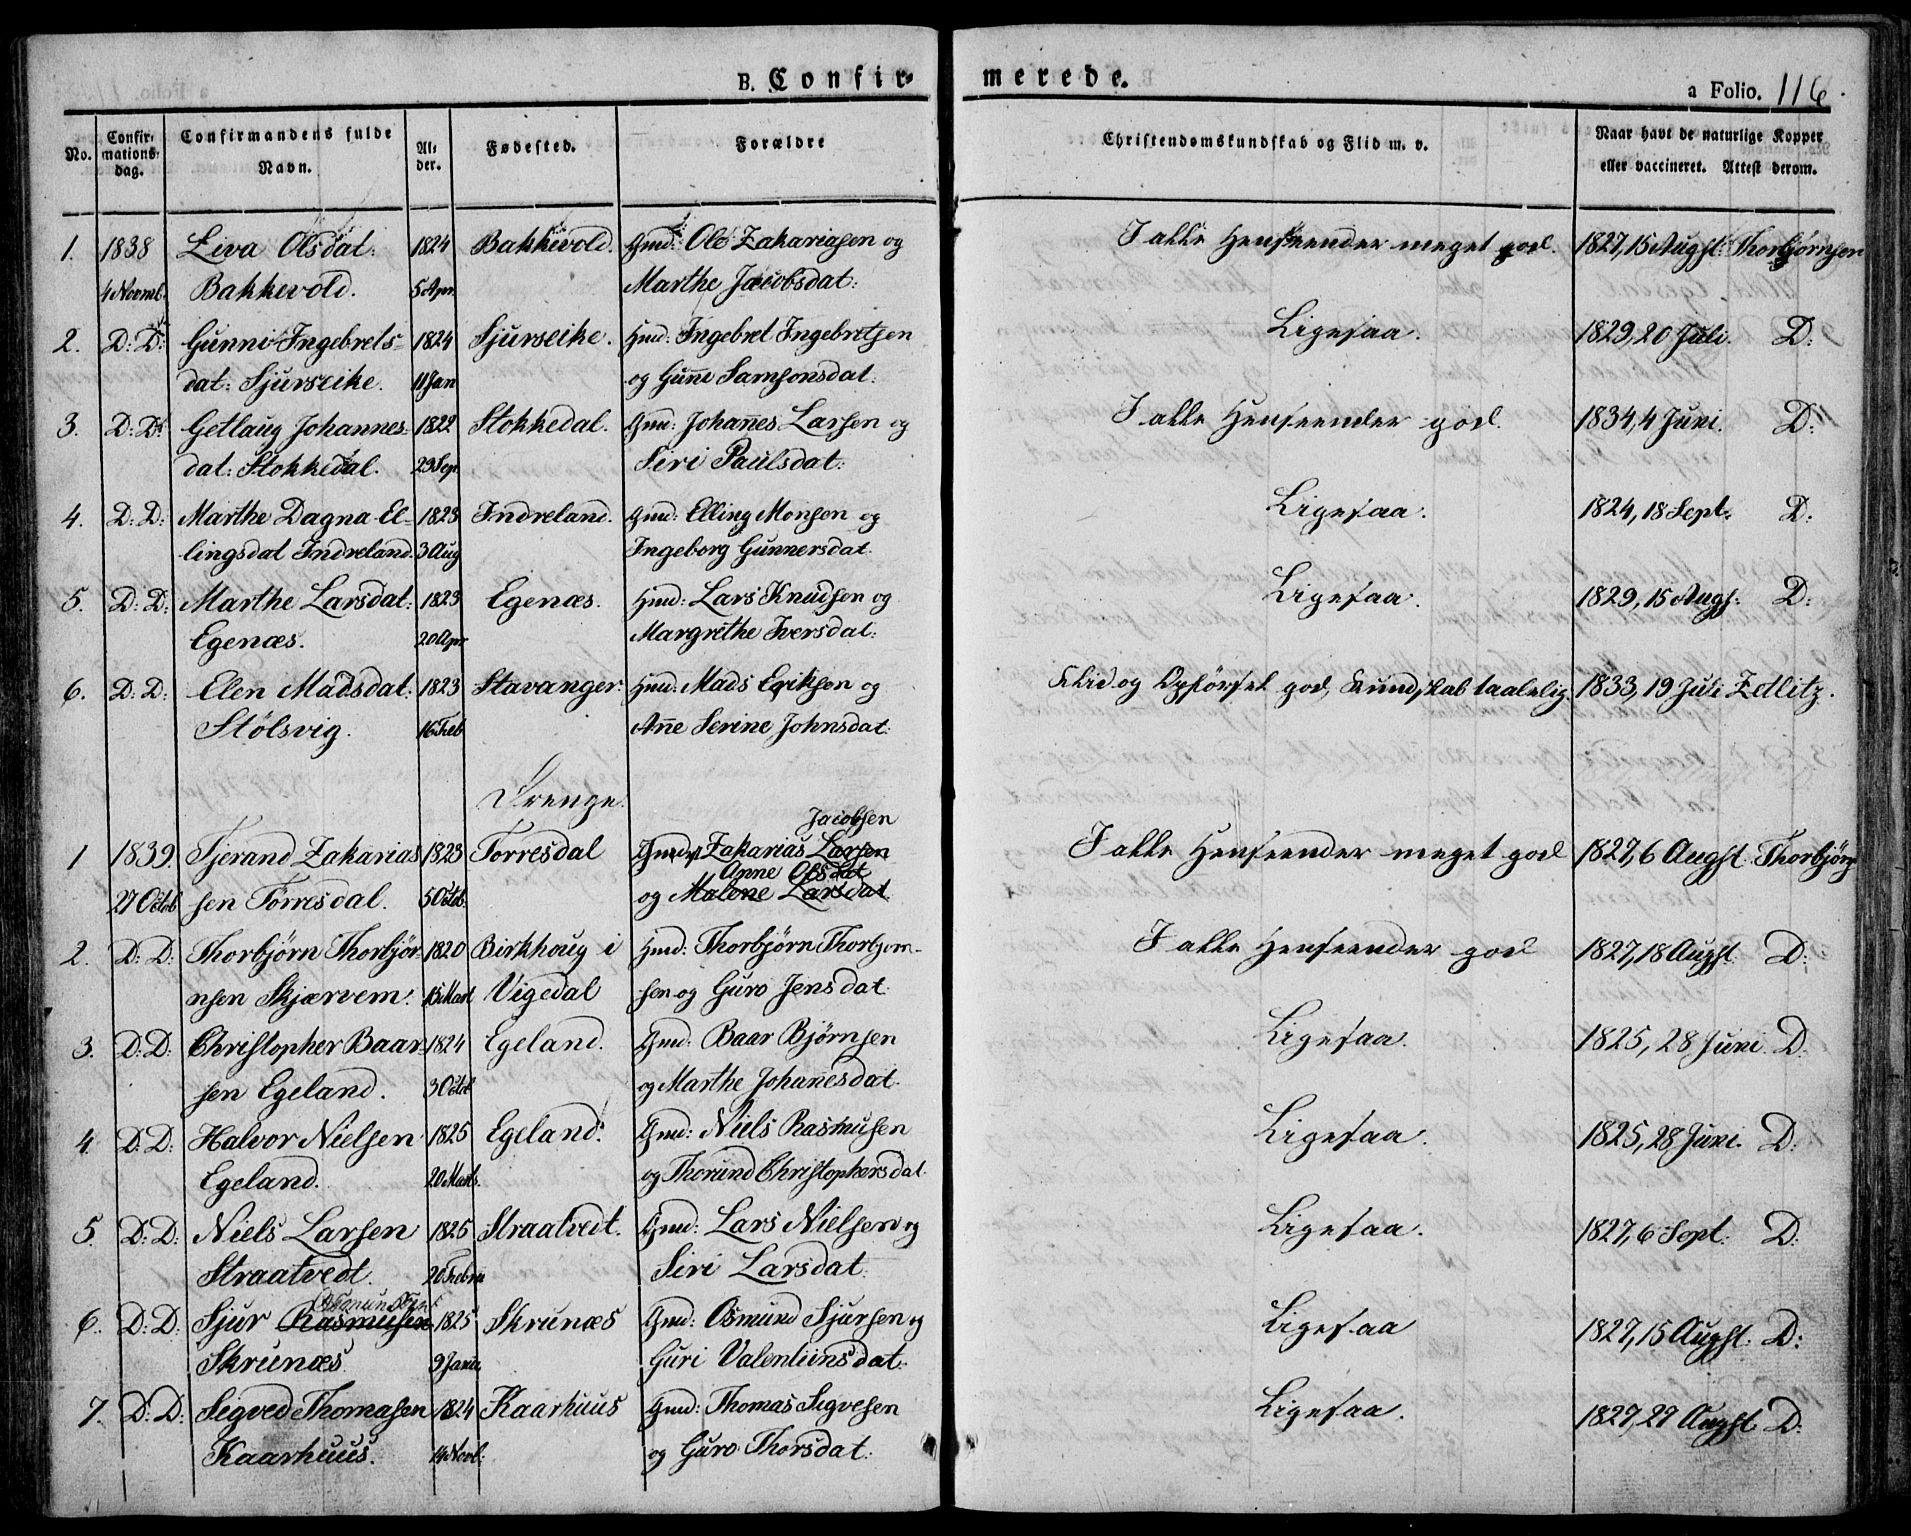 B. Confir- merede.
a Folio. 116.
No. Confir- mations- dag. Confirmandens fulde Navn. Al- der. Fødested. Forældre Christendomskundskab og Flid m. v. Naar havt de naturlige Kopper eller vaccineret. Attest derom.
1. 1838 Liva Olsdat: 1824 Bakkevold. Gmd: Ole Zakariasen og I alle Henseender meget god. 1827, 15 Augst: Thorbjørnsen
4 Novmb. Bakkevold. 5 Apr. Marthe Jacobsdat:
2. D: D: Gunni Ingebrets- 1824 Sjurseike. Hmd: Ingebret Ingebretsen Ligesaa. 1829, 20 Juli. D:
dat: Sjurseike. 11 Jan og Guñe Samsonsdat:
3. D: D: Getlaug Johannes- 1822 Stokkedal. Gmd: Johañes Larsen og I alle Henseender god. 1834, 4 Juni. D:
dat: Stokkedal. 29 Sep. Siri Paulsdat:
4. D: D: Marthe Dagna El- 1823 Indreland. Gmd: Elling Monsen og Ligesaa. 1824, 18 Sept. D:
lingsdat Indreland. 3 Aug Ingeborg Gunnersdat.
5. D: D: Marthe Larsdat: 1823 Egenæs. Hmd: Lars Knudsen og Ligesaa. 1829, 15 Augs: D:
Egenæs. 20 Apr. Margrethe Iversdat:
6. D: D: Elen Madsdat: 1823 Stavanger. Hmd: Mads Eriksen og Flid og Opførsel god, Kundskab taalelig. 1833, 19 Juli Zetlitz.
Stølsvig. 16 Feb Añe Serine Johnsdat:
Drenge.
Jacobsen
1 1839. Tjerand Zakarias 1823 Torresdal Gmd: Zakarias Larsen I alle Henseender meget god 1827, 6 Augst. Thorbjørn
Anne Olsdat
27 Octob. sen Torresdal. 5 Octob. og Malene Larsdat.
2. D: D: Thorbjørn Thorbjør- 1820 Birkhoug i Hmd: Thorbjørn Thorbjørn- I alle Henseender god 1827, 18 Augst. D:
nsen Skjærvem. 15 Mart Vigedal sen og Guro Jensdat.
3. D: D: Christopher Baar- 1824 Egeland. Gmd: Baar Bjørnsen Ligesaa. 1825, 28 Juni. D.
sen Egeland. 3 Octob og Marthe Johañesdat.
4. D: D: Halvor Nielsen 1825 Egeland. Gmd: Niels Rasmusen Ligesaa. 1825, 28 Juni. D:
Egeland. 20 Marts. og Thorund Christophersdat.
5. D: D: Niels Larsen 1825 Straatvedt. Gmd: Lars Nielsen og Ligesaa. 1827, 6 Sept: D:
Straatvedt. 20 Februr Siri Larsdat.
Osmundsen
6. D: D: Sjur Rasmusen 1825 Skrunæs Gmd: Osmund Sjursen og Ligesaa 1827, 15 Augst. D:
Skrunæs 9 Janu. Guri Valentinsdat.
7. D: D. Segved Thomasen 1824 Kaarhuus Gmd: Thomas Sigvesen Ligesaa. 1827, 27 Augst. D:
Kaarhuus. 14 Novb: og Guro Thorsdat: